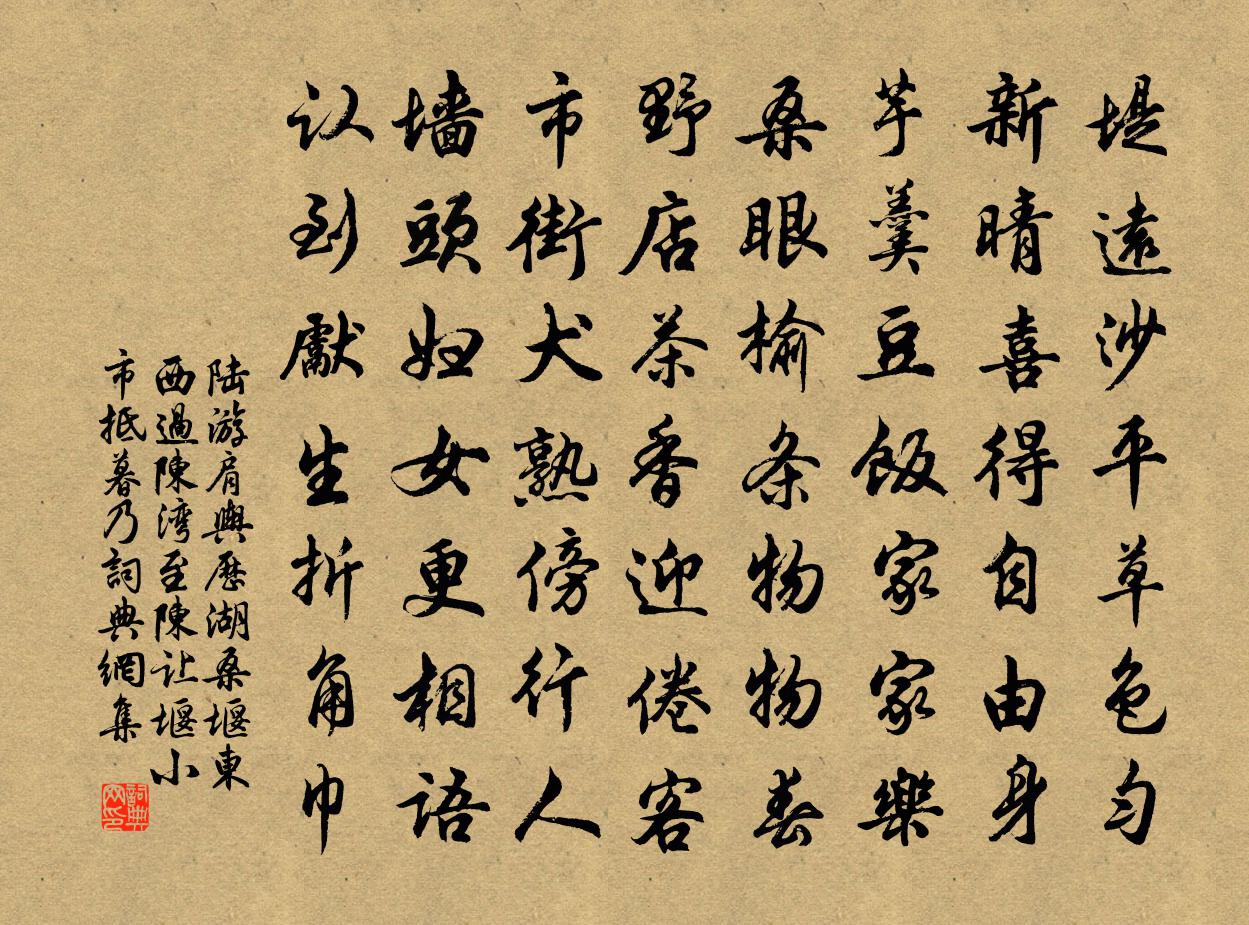 堤遠沙平草色勻
新晴喜得自由身
芋羹豆飯家家樂
桑眼榆条物物春
野店茶香迎倦客
市街犬熟傍行人
墙頭妇女更相語
认到獻生折角巾
陆游肩輿歷湖桑堰東
西過陳湾至陳让堰小
市抵暮乃詞典網集
詞典网印